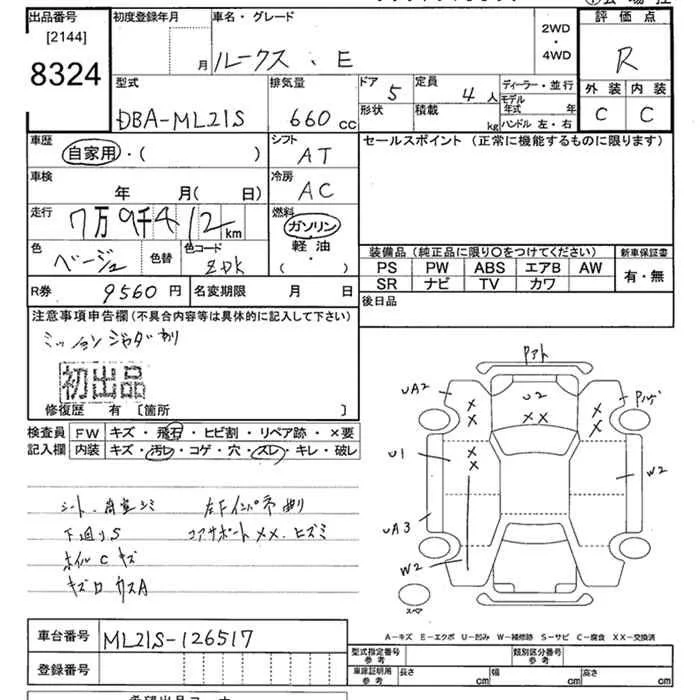 出品番号
[2144]
8324
初度登録年月
月
車名・グレード
ルークス、E
2WD
・
4WD
評価点
R
外装 内装
C C
型式
DBA-ML21S
排気量
660 cc
ドア 5
形状
定員 4人
積載 kg
ディーラー・並行
モデル年式 年
ハンドル 左・右
車歴
自家用・( )
シフト
AT
セールスポイント (正常に機能するものに限ります)
車検
年 月(日)
冷房
AC
走行
7万9千412km
燃料
ガソリン
軽油・
( )
色
ベージュ
色替
色コード
ZDK
装備品 (純正品に限り○をつけてください)
新車保証書
PS PW ABS エアB AW
SR ナビ TV カワ
有・無
R券 9560円
名変期限 月 日
後日品
注意事項申告欄(不具合内容等は具体的に記入して下さい)
ミッションジャダーあり
初出品
修復歴 有 [箇所 ]
検査員 FW キズ・飛石・ヒビ割・リペア跡・×要
記入欄 内装 キズ・汚レ・コゲ・穴・スレ・キレ・破レ
シート、荷室シミ 左Fインパネ曲り
下廻りS コアサポートXX、ヒズミ
ホイルCキズ
UA2
U2
XX
XX
XX
U1
XX
W2
UA3
W2
スペア
A-キズ E-エクボ U-凹み W-補修跡 S-サビ C-腐食 XX-交換済
車台番号 ML21S-126517
登録番号
型式指定番号 参考
類別区分番号 参考
車庫証明用 参考 長さ cm 幅 cm 高さ cm